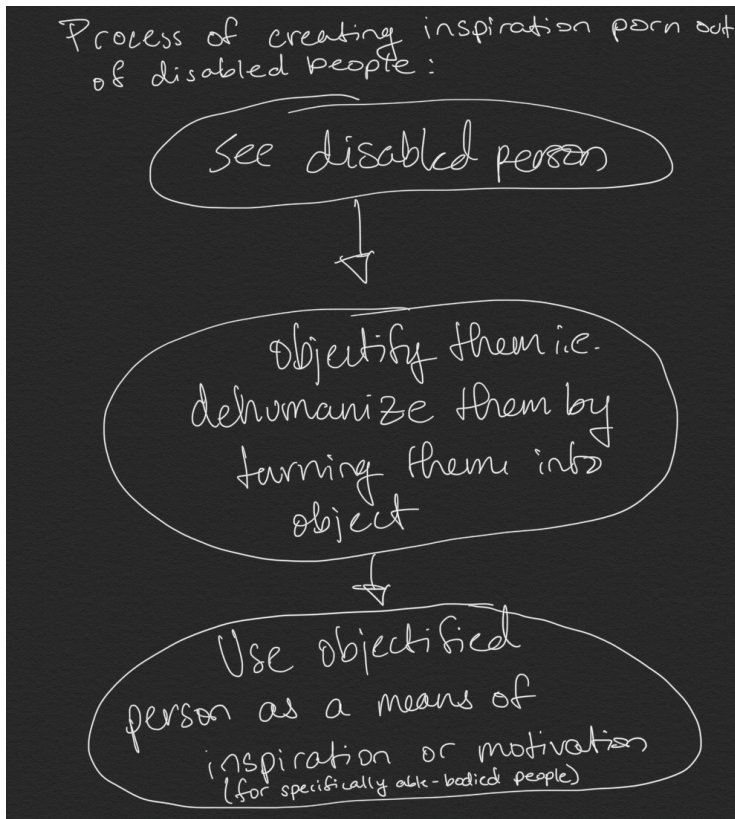 Process of creating inspiration porn out
of disabled people:
See disabled person
Objectify them i.e.
dehumanize them by
turning them into
object
Use objectified
person as a means of
inspiration or motivation
(for specifically able-bodied people)